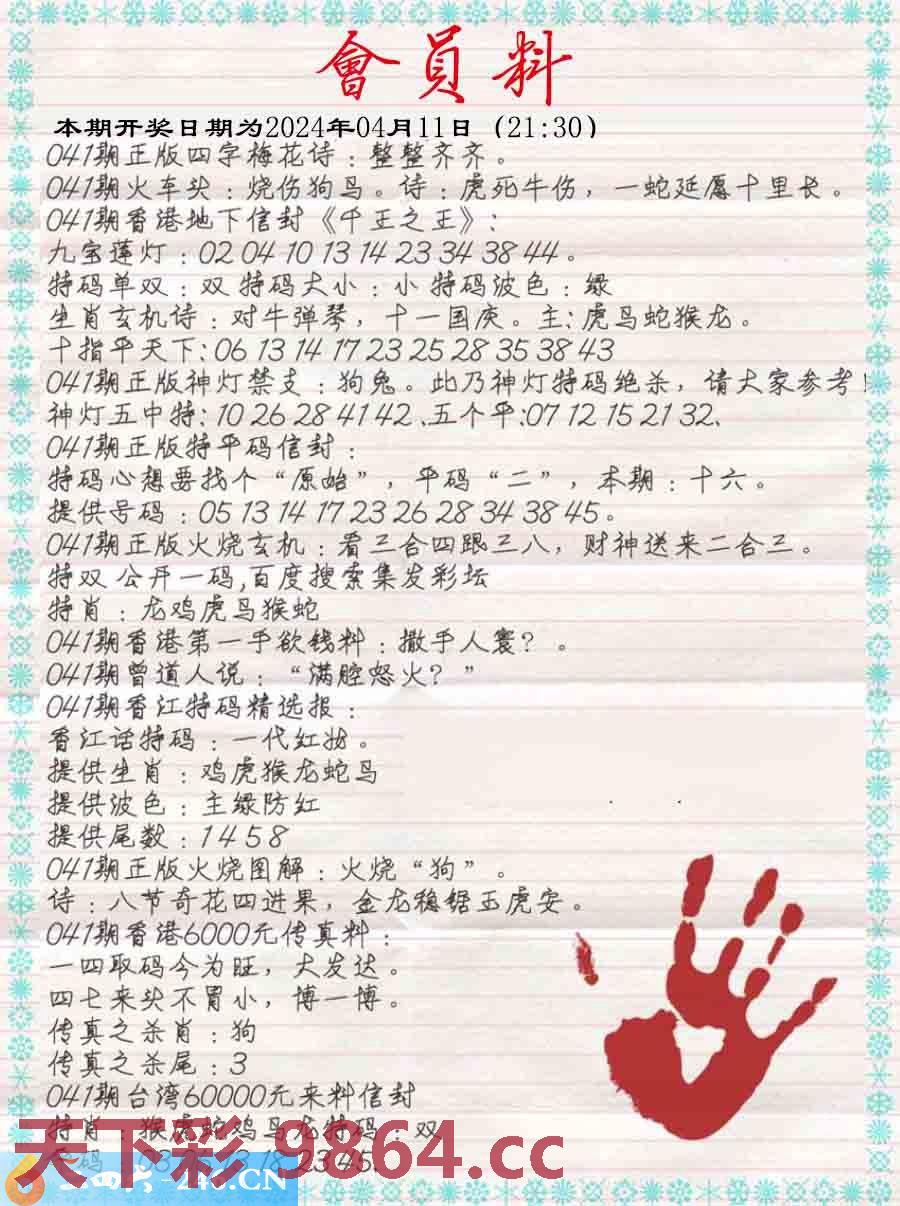 會員料
本期开奖日期为2024年04月11日（21:30）
041期正版四字梅花诗：整整齐齐。
041期火车头：烧伤狗马。诗：虎死牛伤，一蛇延愿十里长。
041期香港地下信封《千王之王》：
九宝莲灯：02 04 10 13 14 23 34 38 44。
特码单双：双 特码大小：小 特码波色：绿
生肖玄机诗：对牛弹琴，十一国庆。主：虎马蛇猴龙。
十指平天下：06 13 14 17 23 25 28 35 38 43
041期正版神灯禁支：狗兔。此乃神灯特码绝杀，请大家参考！
神灯五中特：10 26 28 41 42、五个平：07 12 15 21 32、
041期正版特平码信封：
特码心想要找个“原始”，平码“二”，本期：十六。
提供号码：05 13 14 17 23 26 28 34 38 45。
041期正版火烧玄机：看三合四跟三八，财神送来二合三。
特双 公开一码,百度搜索集发彩坛
特肖：龙鸡虎马猴蛇
041期香港第一手欲钱料：撒手人寰？。
041期曾道人说：“满腔怒火？”
041期香江特码精选报：
香江话特码：一代红妆。
提供生肖：鸡虎猴龙蛇马
提供波色：主绿防红
提供尾数：1 4 5 8
041期正版火烧图解：火烧“狗”。
诗：八节奇花四进果，金龙稳锯玉虎安。
041期香港6000元传真料：
一四取码今为旺，大发达。
四七来头不冒小，博一博。
传真之杀肖：狗
传真之杀尾：3
041期台湾60000元来料信封
特肖：猴虎蛇鸡马龙特码：双
天下彩 9864.cc
23 45.
246.CN